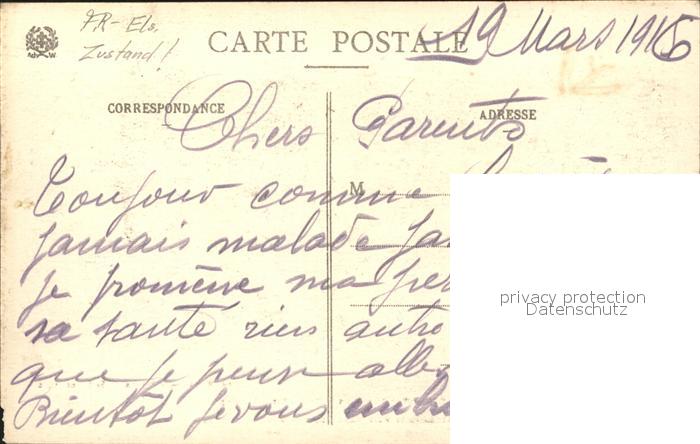 FR - Els.
Zustand!
CARTE POSTALE
19 Mars 1915
CORRESPONDANCE
ADRESSE
Chers Parents
M
Toujour comme
jamais malade
je promène ma
sa santé rien autre
que je peux
Bientôt je vous
privacy protection
Datenschutz